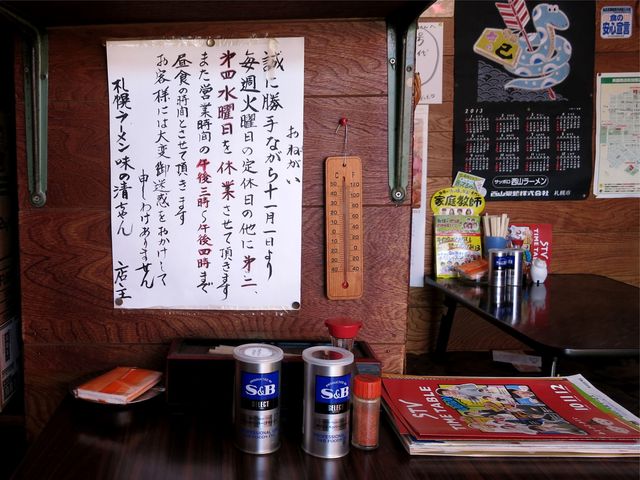 おねがい
誠に勝手ながら十一月一日より
毎週火曜日の定休日の他に第二、
第四水曜日を休業させて頂きます
また営業時間の午後三時〜午後四時まで
昼食の時間とさせて頂きます
お客様には大変御迷惑をおかけして
申しわけありません
札幌ラーメン味の清ちゃん 店主
C F
S&B
SELECT
S&B
SELECT
STV
TIME TABLE
10/11/12
家庭教師
STV
TIME TA
巳
2013
サッポロ 西山ラーメン
西山製麺株式会社 札幌市
食の
安心宣言